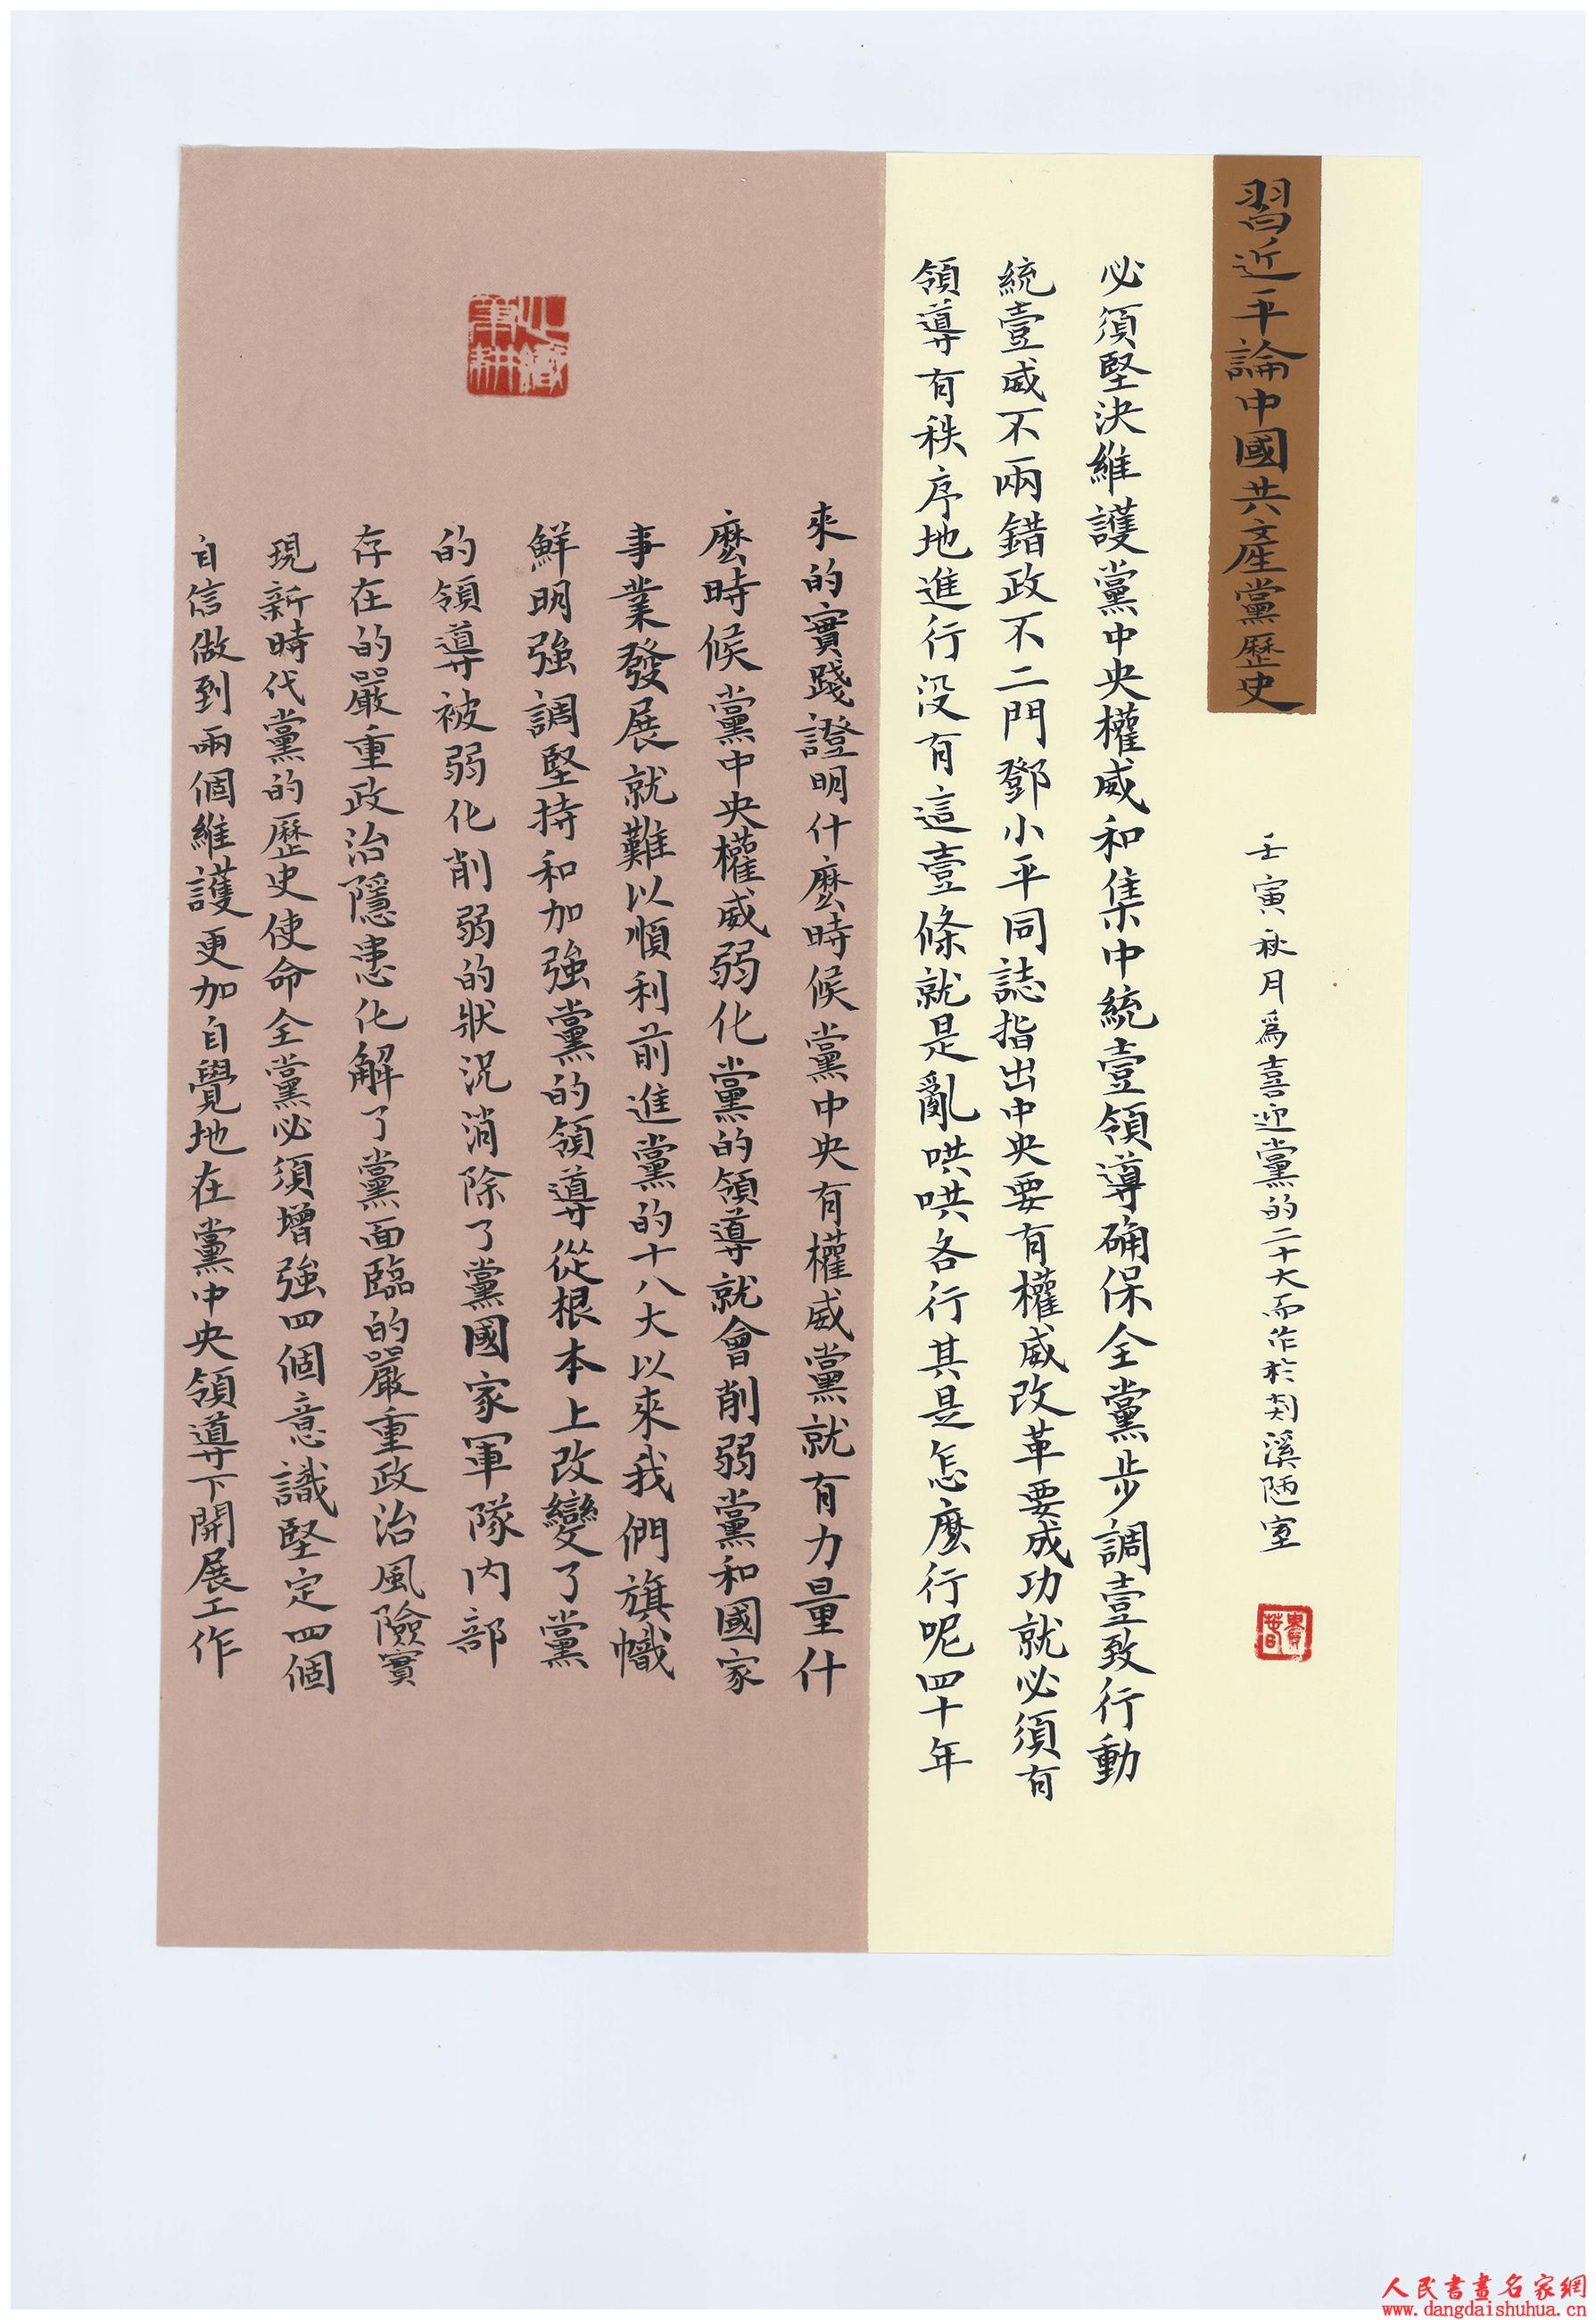 習近平論中國共產黨歷史
壬寅秋月為喜迎黨的二十大而作於剡溪陋室
必須堅決維護黨中央權威和集中統壹領導确保全黨步調壹致行動
統壹威不兩錯政不二門鄧小平同誌指出中央要有權威改革要成功就必須有
領導有秩序地進行没有這壹條就是亂哄哄各行其是怎麽行呢四十年
來的實踐證明什麽時候黨中央有權威黨就有力量什
麽時候黨中央權威弱化黨的領導就會削弱黨和國家
事業發展就難以順利前進黨的十八大以來我們旗幟
鮮明強調堅持和加強黨的領導從根本上改變了黨
的領導被弱化削弱的狀況消除了黨國家軍隊内部
存在的嚴重政治隱患化解了黨面臨的嚴重政治風險實
現新時代黨的歷史使命全黨必須增強四個意識堅定四個
自信做到兩個維護更加自覺地在黨中央領導下開展工作
人民書畫名家網
www.dangdaishuhua.cn